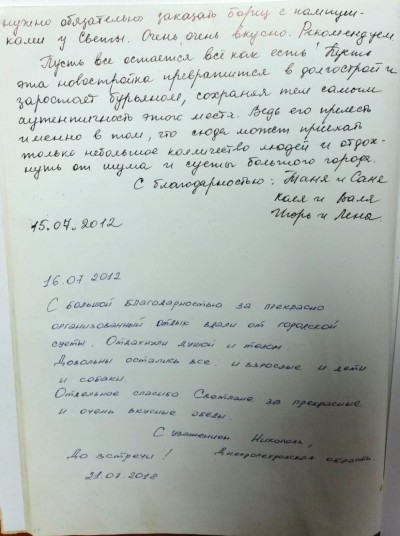 нужно обязательно заказать борщ с пампуш-
ками у Светы. Очень, очень вкусно. Рекомендуем
Пусть все остается всё как есть! Пусть
эта новостройка превратится в долгострой и
зарастает бурьяном, сохраняя тем самым
аутентичность этого места. Ведь его прелесть
именно в том, что сюда может приехать
только небольшое количество людей и отдох-
нуть от шума и суеты большого города.
С благодарностью: Таня и Саня
Коля и Валя
Игорь и Лена.
15.07.2012
16.07.2012
С большой благодарностью за прекрасно
организованный отдых вдали от городской
суеты. Отдохнули душой и телом.
Довольны остались все: и взрослые и дети
и собаки.
Отдельное спасибо Светлане за прекрасные
и очень вкусные обеды.
С уважением Никополь,
До встречи! Днепропетровская область.
21.07.2012